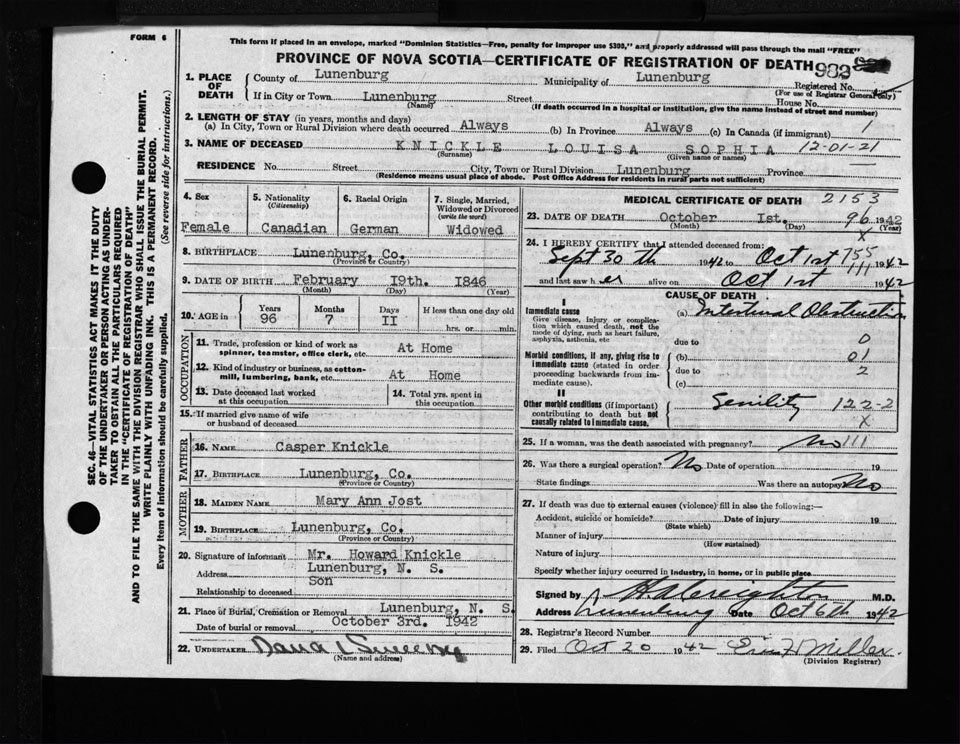 FORM 6
This form if placed in an envelope, marked "Dominion Statistics—Free, penalty for improper use $300," and properly addressed will pass through the mail "FREE"
PROVINCE OF NOVA SCOTIA—CERTIFICATE OF REGISTRATION OF DEATH 982
SEC. 46—VITAL STATISTICS ACT MAKES IT THE DUTY
OF THE UNDERTAKER OR PERSON ACTING AS UNDER-
TAKER TO OBTAIN ALL THE PARTICULARS REQUIRED
IN THE "CERTIFICATE OF REGISTRATION OF DEATH"
AND TO FILE THE SAME WITH THE DIVISION REGISTRAR WHO SHALL ISSUE THE BURIAL PERMIT.
WRITE PLAINLY WITH UNFADING INK. THIS IS A PERMANENT RECORD.
Every item of information should be carefully supplied. (See reverse side for instructions.)
1. PLACE OF DEATH
County of Lunenburg Municipality of Lunenburg Registered No.
(For use of Registrar General only)
If in City or Town Lunenburg Street House No.
(Name) (If death occurred in a hospital or institution, give the name instead of street and number)
2. LENGTH OF STAY (in years, months and days)
(a) In City, Town or Rural Division where death occurred Always (b) In Province Always (c) In Canada (if immigrant) 1
3. NAME OF DECEASED KNICKLE LOUISA SOPHIA 12-01-21
(Surname) (Given name or names)
RESIDENCE No. Street City, Town or Rural Division Lunenburg Province
(Residence means usual place of abode. Post Office Address for residents in rural parts not sufficient)
4. Sex
Female
5. Nationality
(Citizenship)
Canadian
6. Racial Origin
German
7. Single, Married, Widowed or Divorced
(write the word)
Widowed
8. BIRTHPLACE Lunenburg, Co.
(Province or Country)
9. DATE OF BIRTH February I9th. 1846
(Month) (Day) (Year)
10. AGE in Years Months Days If less than one day old
96 7 II hrs. or min.
OCCUPATION
11. Trade, profession or kind of work as spinner, teamster, office clerk, etc. At Home
12. Kind of industry or business, as cotton-mill, lumbering, bank, etc. At Home
13. Date deceased last worked at this occupation
14. Total yrs. spent in this occupation
15. If married give name of wife or husband of deceased
FATHER
16. NAME Casper Knickle
17. BIRTHPLACE Lunenburg, Co.
(Province or Country)
MOTHER
18. MAIDEN NAME Mary Ann Jost
19. BIRTHPLACE Lunenburg, Co.
(Province or Country)
20. Signature of informant Mr. Howard Knickle
Address Lunenburg, N. S.
Relationship to deceased Son
21. Place of Burial, Cremation or Removal Lunenburg, N. S.
Date of burial or removal October 3rd. 1942
22. UNDERTAKER
(Name and address)
MEDICAL CERTIFICATE OF DEATH 2153
23. DATE OF DEATH October Ist. 96 1942
(Month) (Day) (Year)
X
24. I HEREBY CERTIFY that I attended deceased from:
Sept 30th 1942 to Oct 1st 1942
755
111
and last saw her alive on Oct 1st 1942
CAUSE OF DEATH
I
Immediate cause
Give disease, injury or complication which caused death, not the mode of dying, such as heart failure, asphyxia, asthenia, etc
(a) Intestinal Obstruction
due to 0
Morbid conditions, if any, giving rise to immediate cause (stated in order proceeding backwards from immediate cause).
(b) 01
due to 2
(c)
II
Other morbid conditions (if important) contributing to death but not causally related to immediate cause.
Senility 122-2
X
25. If a woman, was the death associated with pregnancy? no 111
26. Was there a surgical operation? No Date of operation 19
State findings Was there an autopsy No
27. If death was due to external causes (violence) fill in also the following:—
Accident, suicide or homicide? Date of injury 19
(State which)
Manner of injury
(How sustained)
Nature of injury
Specify whether injury occurred in industry, in home, or in public place
Signed by H A Creighton M.D.
Address Lunenburg Date Oct 6th 1942
28. Registrar's Record Number
29. Filed Oct 20 1942 Miller
(Division Registrar)